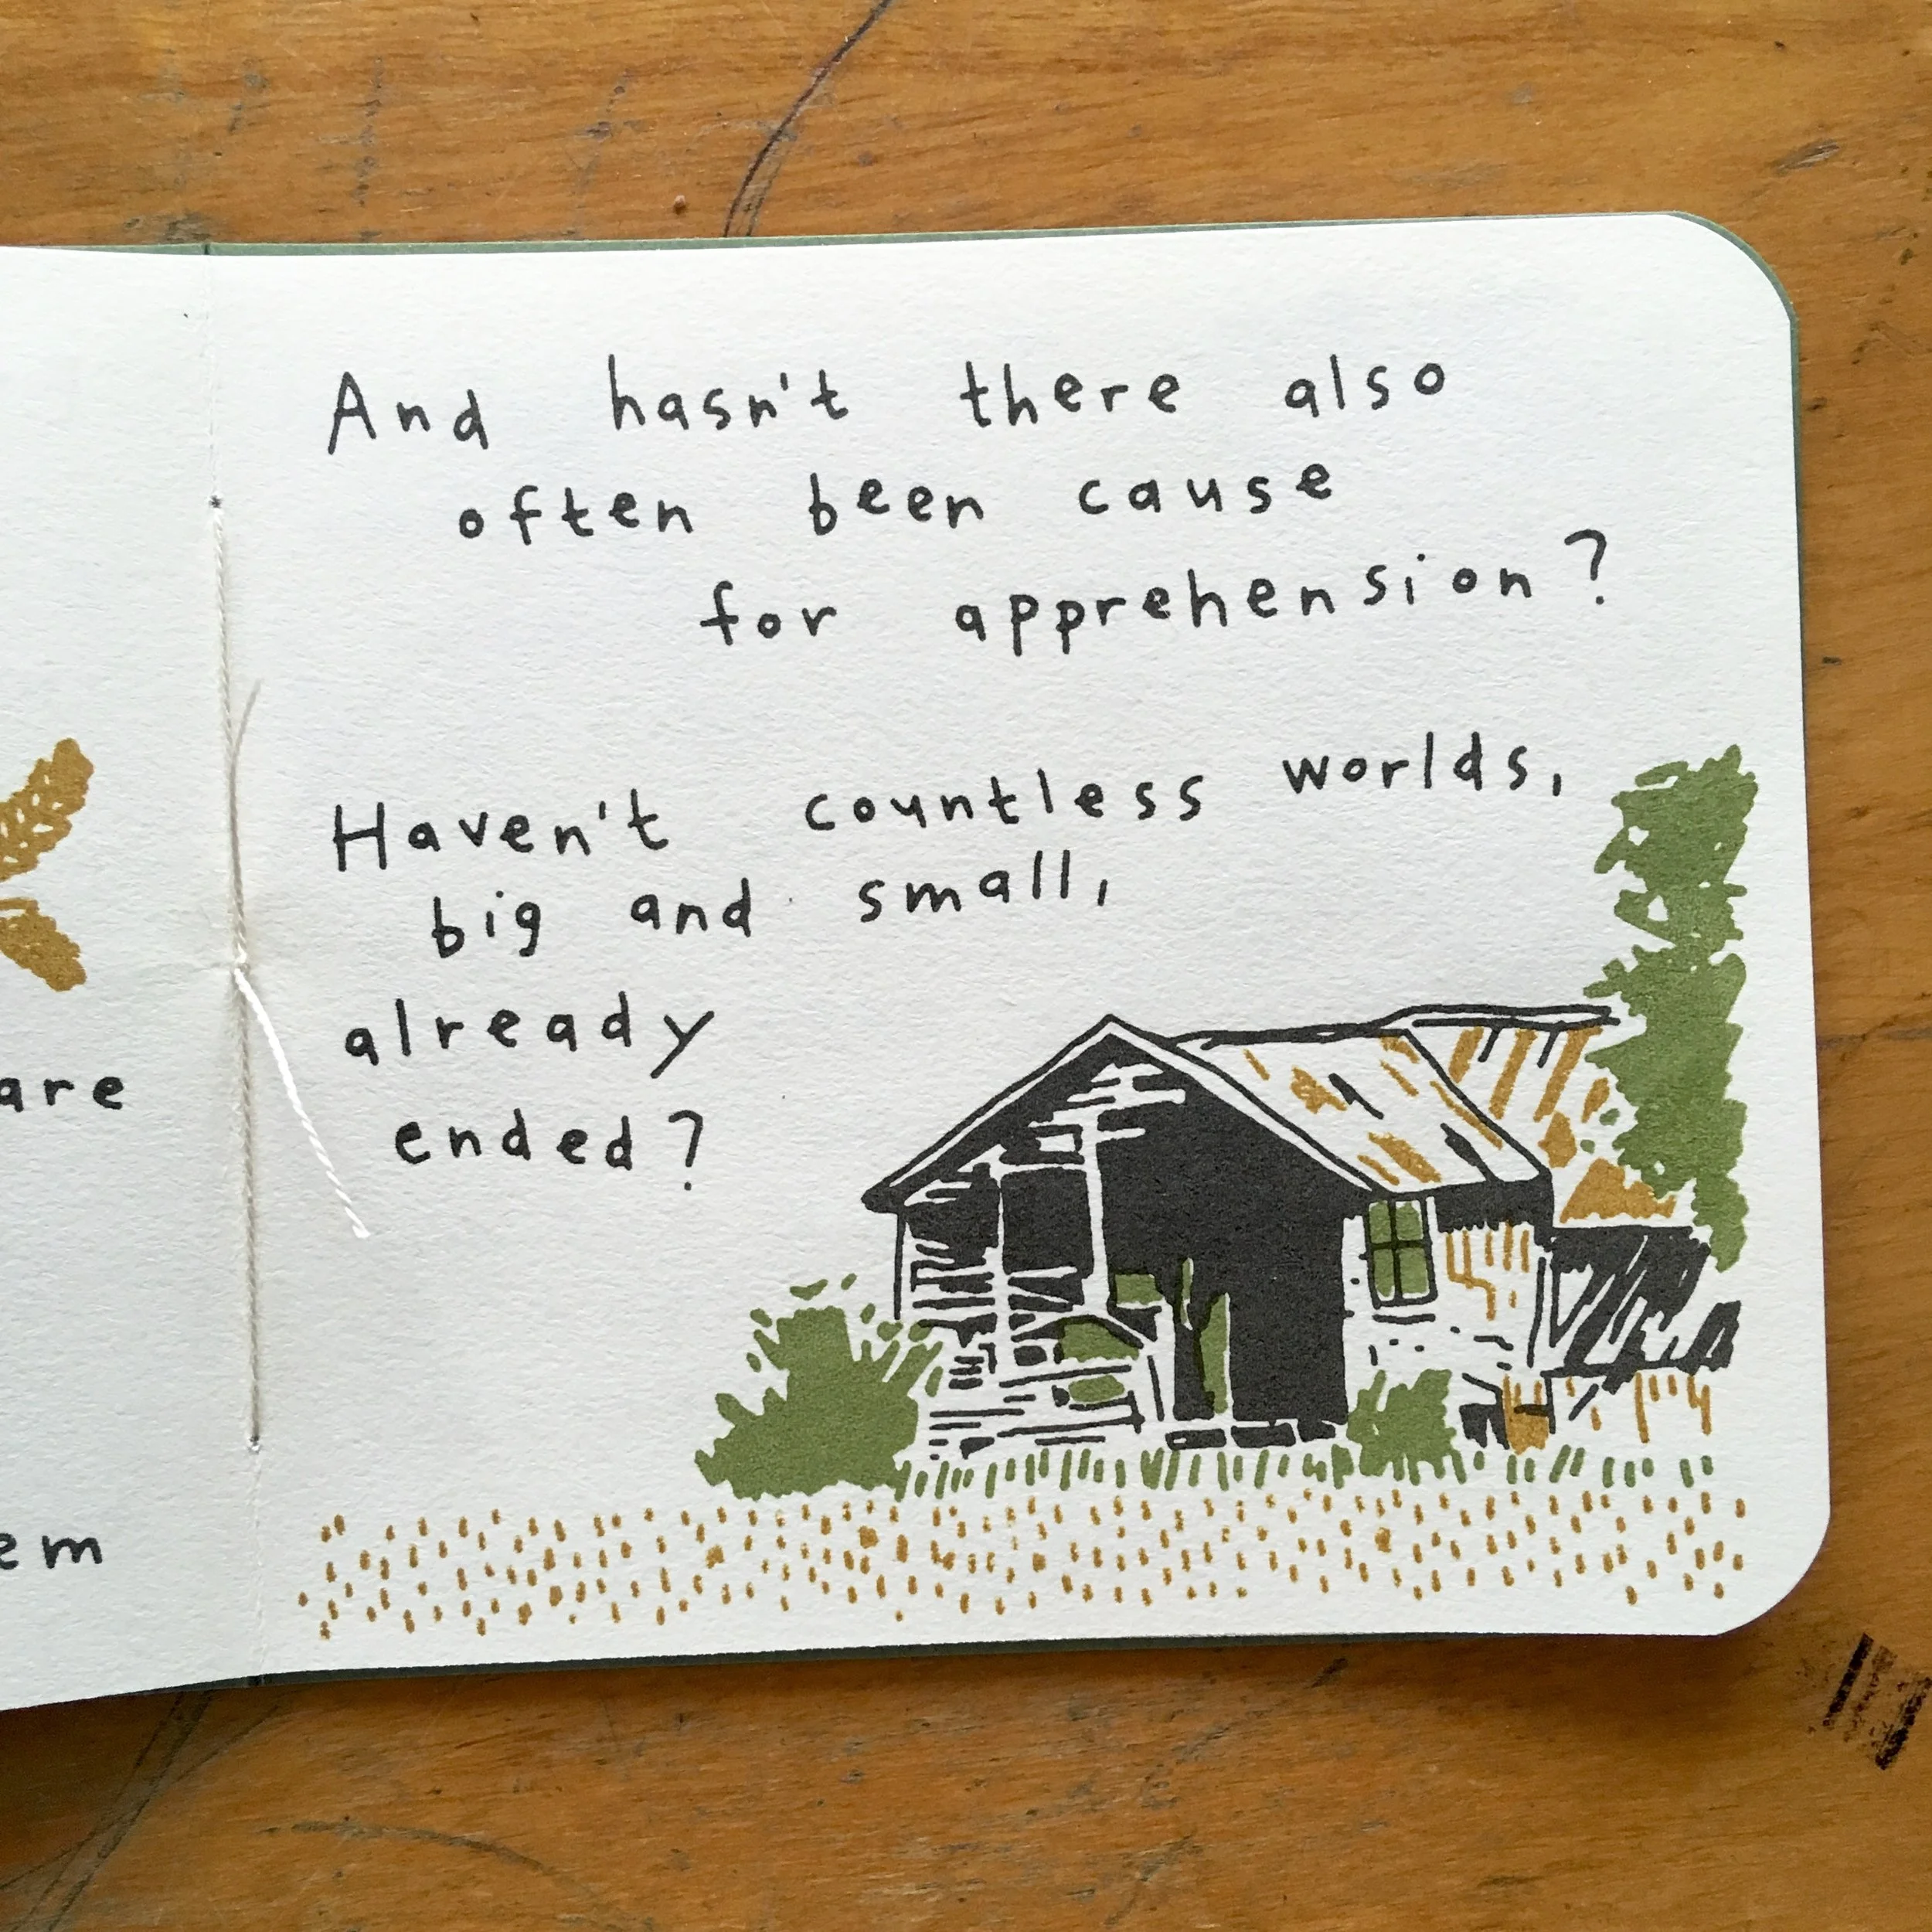 are
em
And hasn't there also
often been cause
for apprehension?
Haven't countless worlds,
big and small,
already
ended?